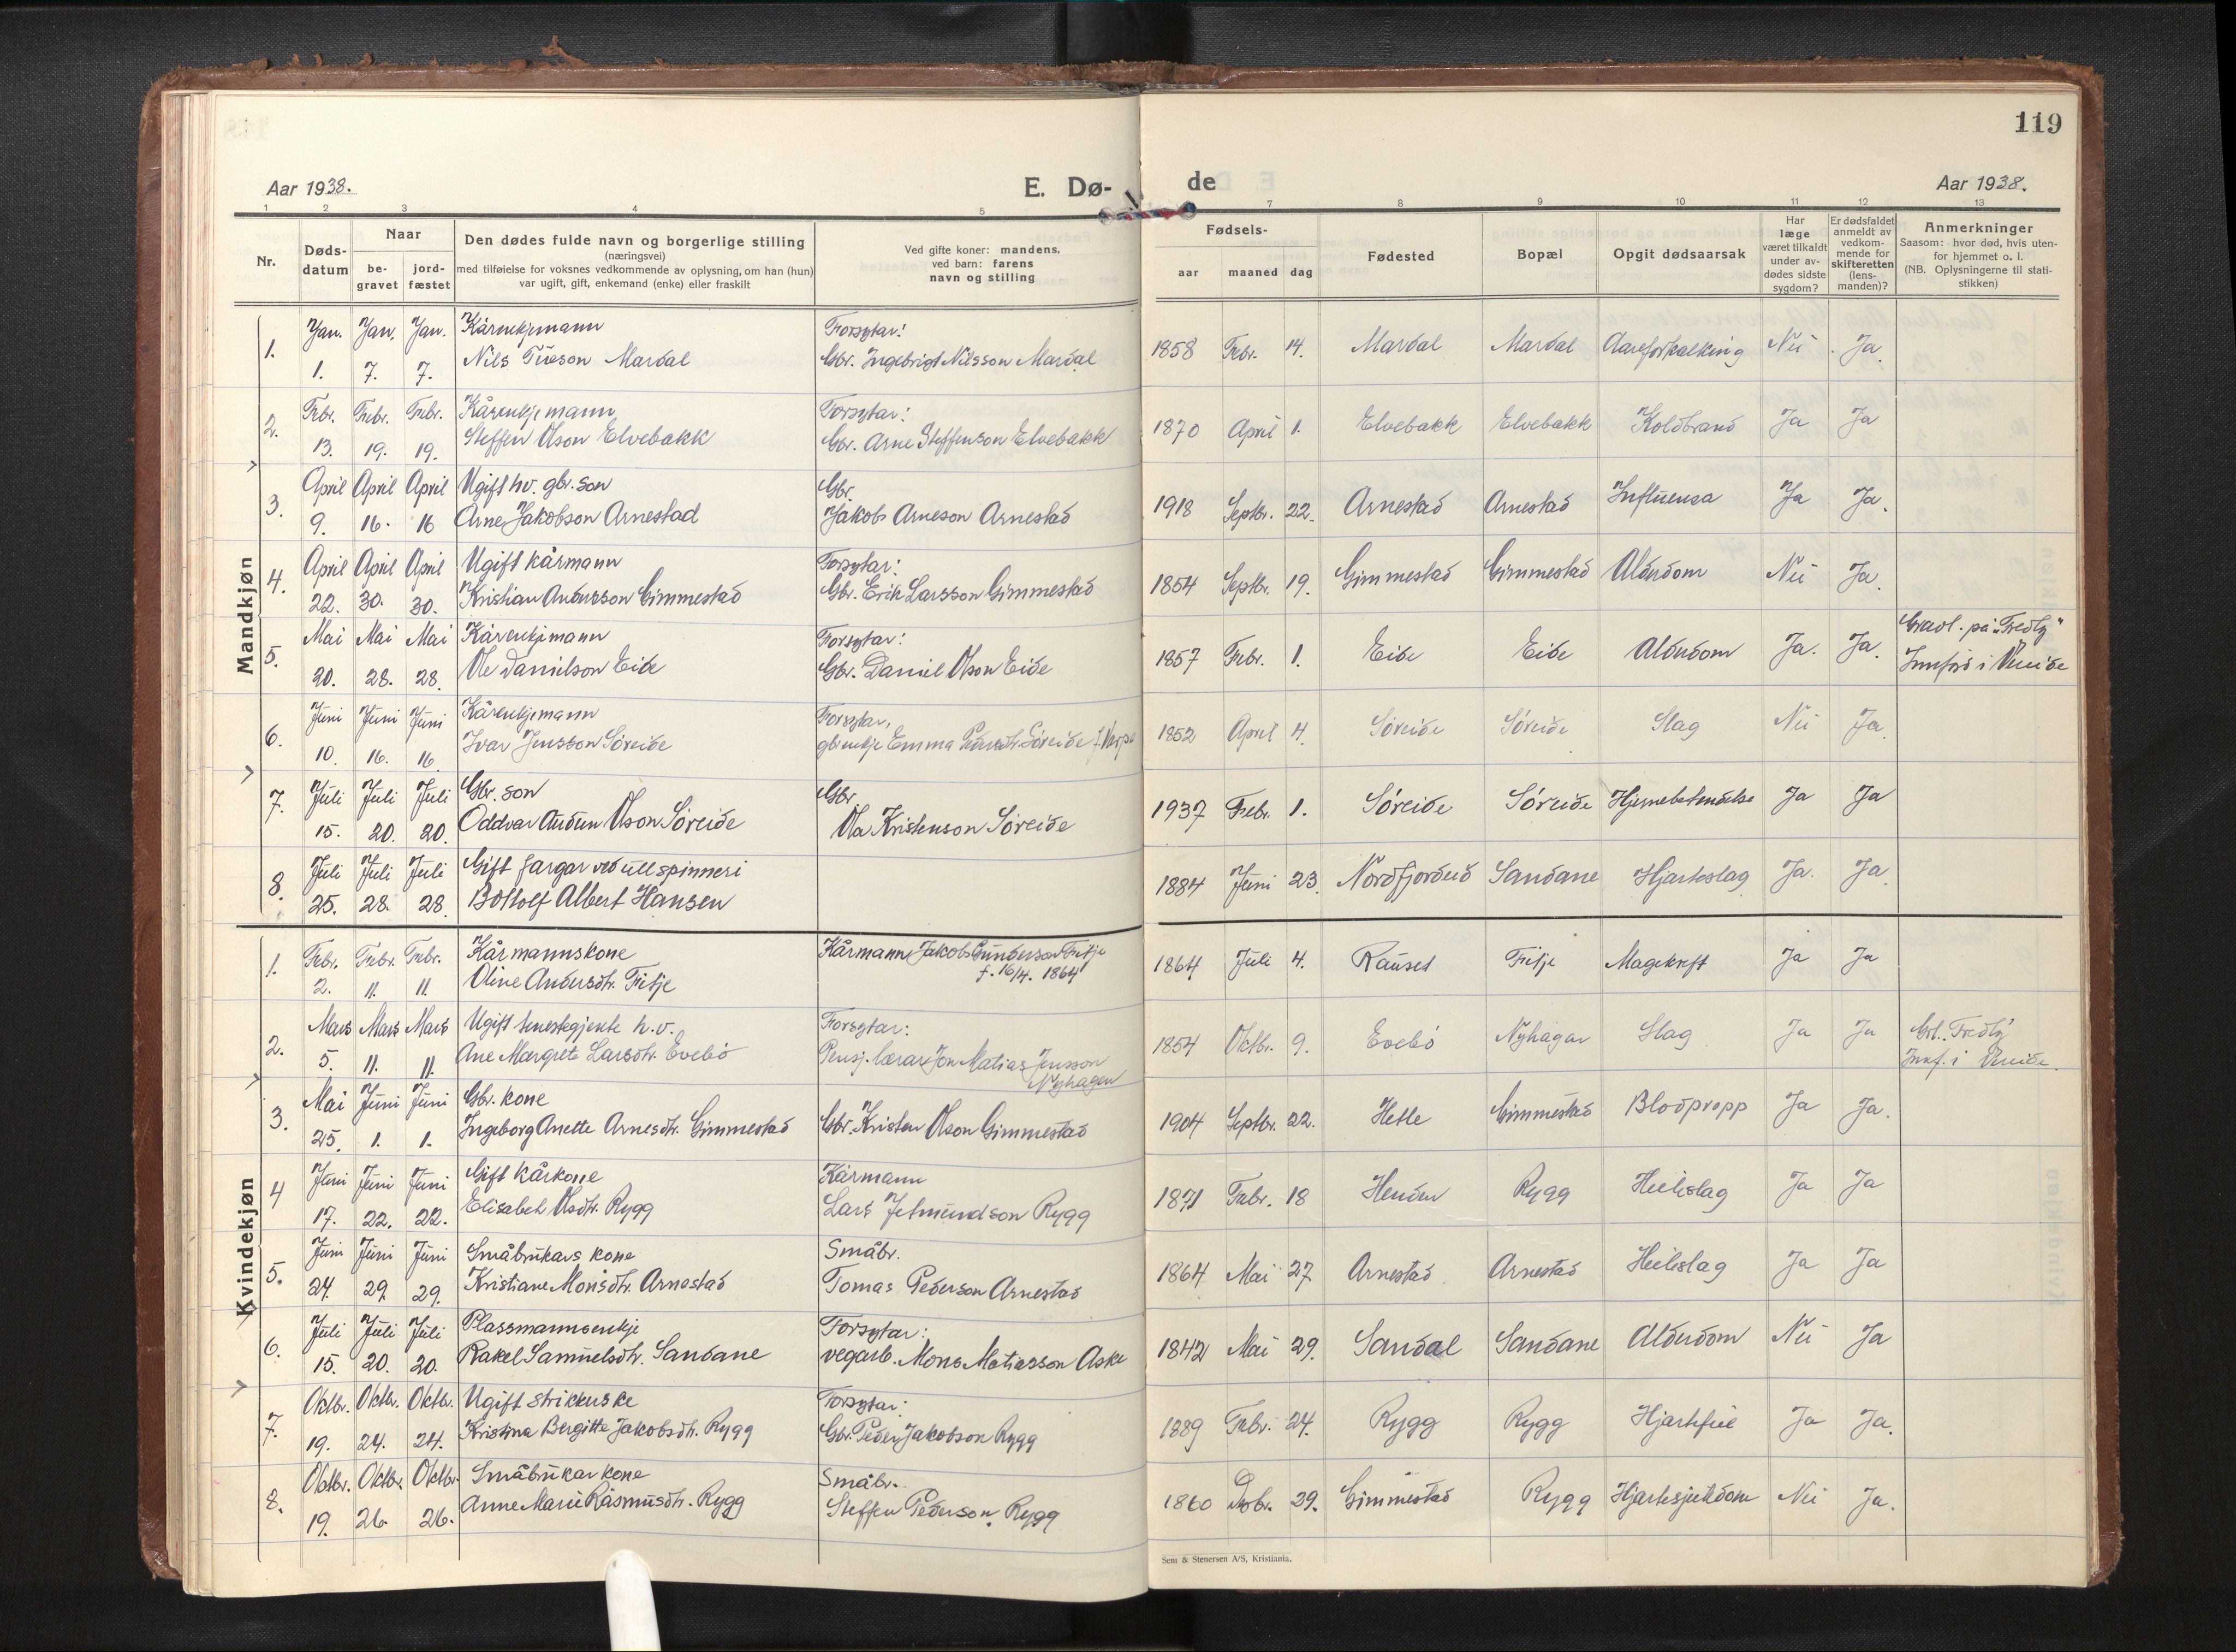 119
Aar 1938.
E. Dø-
de
Aar 1938.
1 2 3 4 5 7 8 9 10 11 12 13
Nr.
Døds-
datum
Naar
be-
gravet
jord-
fæstet
Den dødes fulde navn og borgerlige stilling
(næringsvei)
med tilføielse for voksnes vedkommende av oplysning, om han (hun)
var ugift, gift, enkemand (enke) eller fraskilt
Ved gifte koner: mandens,
ved barn: farens
navn og stilling
Fødsels-
aar
maaned
dag
Fødested
Bopæl
Opgit dødsaarsak
Har
læge
været tilkaldt
under av-
dødes sidste
sygdom?
Er dødsfaldet
anmeldt av
vedkom-
mende for
skifteretten
(lens-
manden)?
Anmerkninger
Saasom: hvor død, hvis uten-
for hjemmet o. l.
(NB. Oplysningerne til stati-
stikken)
Mandkjøn
Jan. Jan. Jan. Kårenkjemann Forsytar:
1. 1. 7. 7. Nils Mardal Gbr. Ingebrigt Nilsson Mardal 1858 Febr. 14. Mardal Mardal Aareforkalking Nei Ja.
Febr. Febr. Febr. Kårenkjemann Forsytar:
2. 13. 19. 19. Steffen Olson Elvebakk Gbr. Arne Steffenson Elvebakk 1870 April 1. Elvebakk Elvebakk Koldbrand Ja Ja
April April April Ugift hv. gbr. son Gbr.
3. 9. 16. 16 Arne Jakobson Arnestad Jakob Arneson Arnestad 1918 Septbr. 22. Arnestad Arnestad Influensa Ja Ja.
April April April Ugift kårmann Forsytar:
4. 22. 30. 30. Kristian Andersson Gimmestad Gbr. Erik Larsson Gimmestad 1854 Septbr. 19. Gimmestad Gimmestad Alderdom Nei Ja.
Mai Mai Mai Kårenkjemann Forsytar: Gravl. på "Fredly"
5. 20. 28. 28. Ole Danielson Eide Gbr. Daniel Olson Eide 1857 Febr. 1. Eide Eide Alderdom Ja. Ja. Innførd i
Juni Juni Juni Kårenkjemann Forsytar,
6. 10. 16. 16. Ivar Jensson Søreide gbrenkje Emma Søreide 1852 April 4. Søreide Søreide Slag Nei Ja.
Juli Juli Juli Gbr. son Gbr.
7. 15. 20. 20. Oddvar Audun Olson Søreide Ola Kristenson Søreide 1937 Febr. 1. Søreide Søreide Hjernebetendelse Ja Ja
Juli Juli Juli Gift fargar ved ullspinneri
8. 25. 28. 28. Bottolf Albert Hansen 1884 Juni 23. Nordfjordeid Sandane Hjarteslag Ja. Ja.
Kvindekjøn
Febr. Febr. Febr. Kårmannskone Kårmann Jakob Gunderson Fitje
1. 2. 11. 11. Oline Andersdtr. Fitje f. 16/4. 1864 1864 Juli 4. Rauset Fitje Magekreft Ja Ja
Mars Mars Mars Ugift tenestegjente h.v. Forsytar:
2. 5. 11. 11. Ane Margrete Larsdtr. Evebø Pensj. lærar Jon Matias Jensson
Nyhagen 1854 Oktbr. 9. Evebø Nyhagar Slag Ja Ja Grl. "Fredly"
Innf. i
Mai Juni Juni Gbr. kone
3. 25. 1. 1. Ingeborg Anette Arnesdtr. Gimmestad Gbr. Kristen Olson Gimmestad 1904 Septbr. 22. Hetle Gimmestad Blodpropp Ja Ja.
Juni Juni Juni Gift kårkone Kårmann
4 17. 22. 22. Elisabet Olsdtr. Rygg Lars Jetmundson Rygg 1871 Febr. 18 Henden Rygg Heileslag Ja Ja
Juni Juni Juni Småbrukars kone Småbr.
5. 24. 29. 29. Kristiane Monsdtr. Arnestad Tomas Pederson Arnestad 1864 Mai 27 Arnestad Arnestad Heileslag Ja Ja
Juli Juli Juli Plassmannsenkje Forsytar:
6. 15. 20. 20. Rakel Samuelsdtr. Sandane vegarb. Mons Matiasson Aske 1842 Mai 29. Sandal Sandane Alderdom Nei Ja
Oktbr. Oktbr. Oktbr. Ugift strikkerske Forsytar:
7. 19. 24. 24. Kristina Bergitte Jakobsdtr. Rygg Gbr. Peder Jakobson Rygg 1889 Febr. 24. Rygg Rygg Hjartefeil Ja Ja.
Oktbr. Oktbr. Oktbr. Småbrukar kone Småbr.
8. 19. 26. 26. Anne Marie Rasmusdtr. Rygg Steffen Pederson Rygg 1860 Dsbr. 29. Gimmestad Rygg Hjartesjukdom Nei Ja.
Sem & Stenersen A/S, Kristiania.